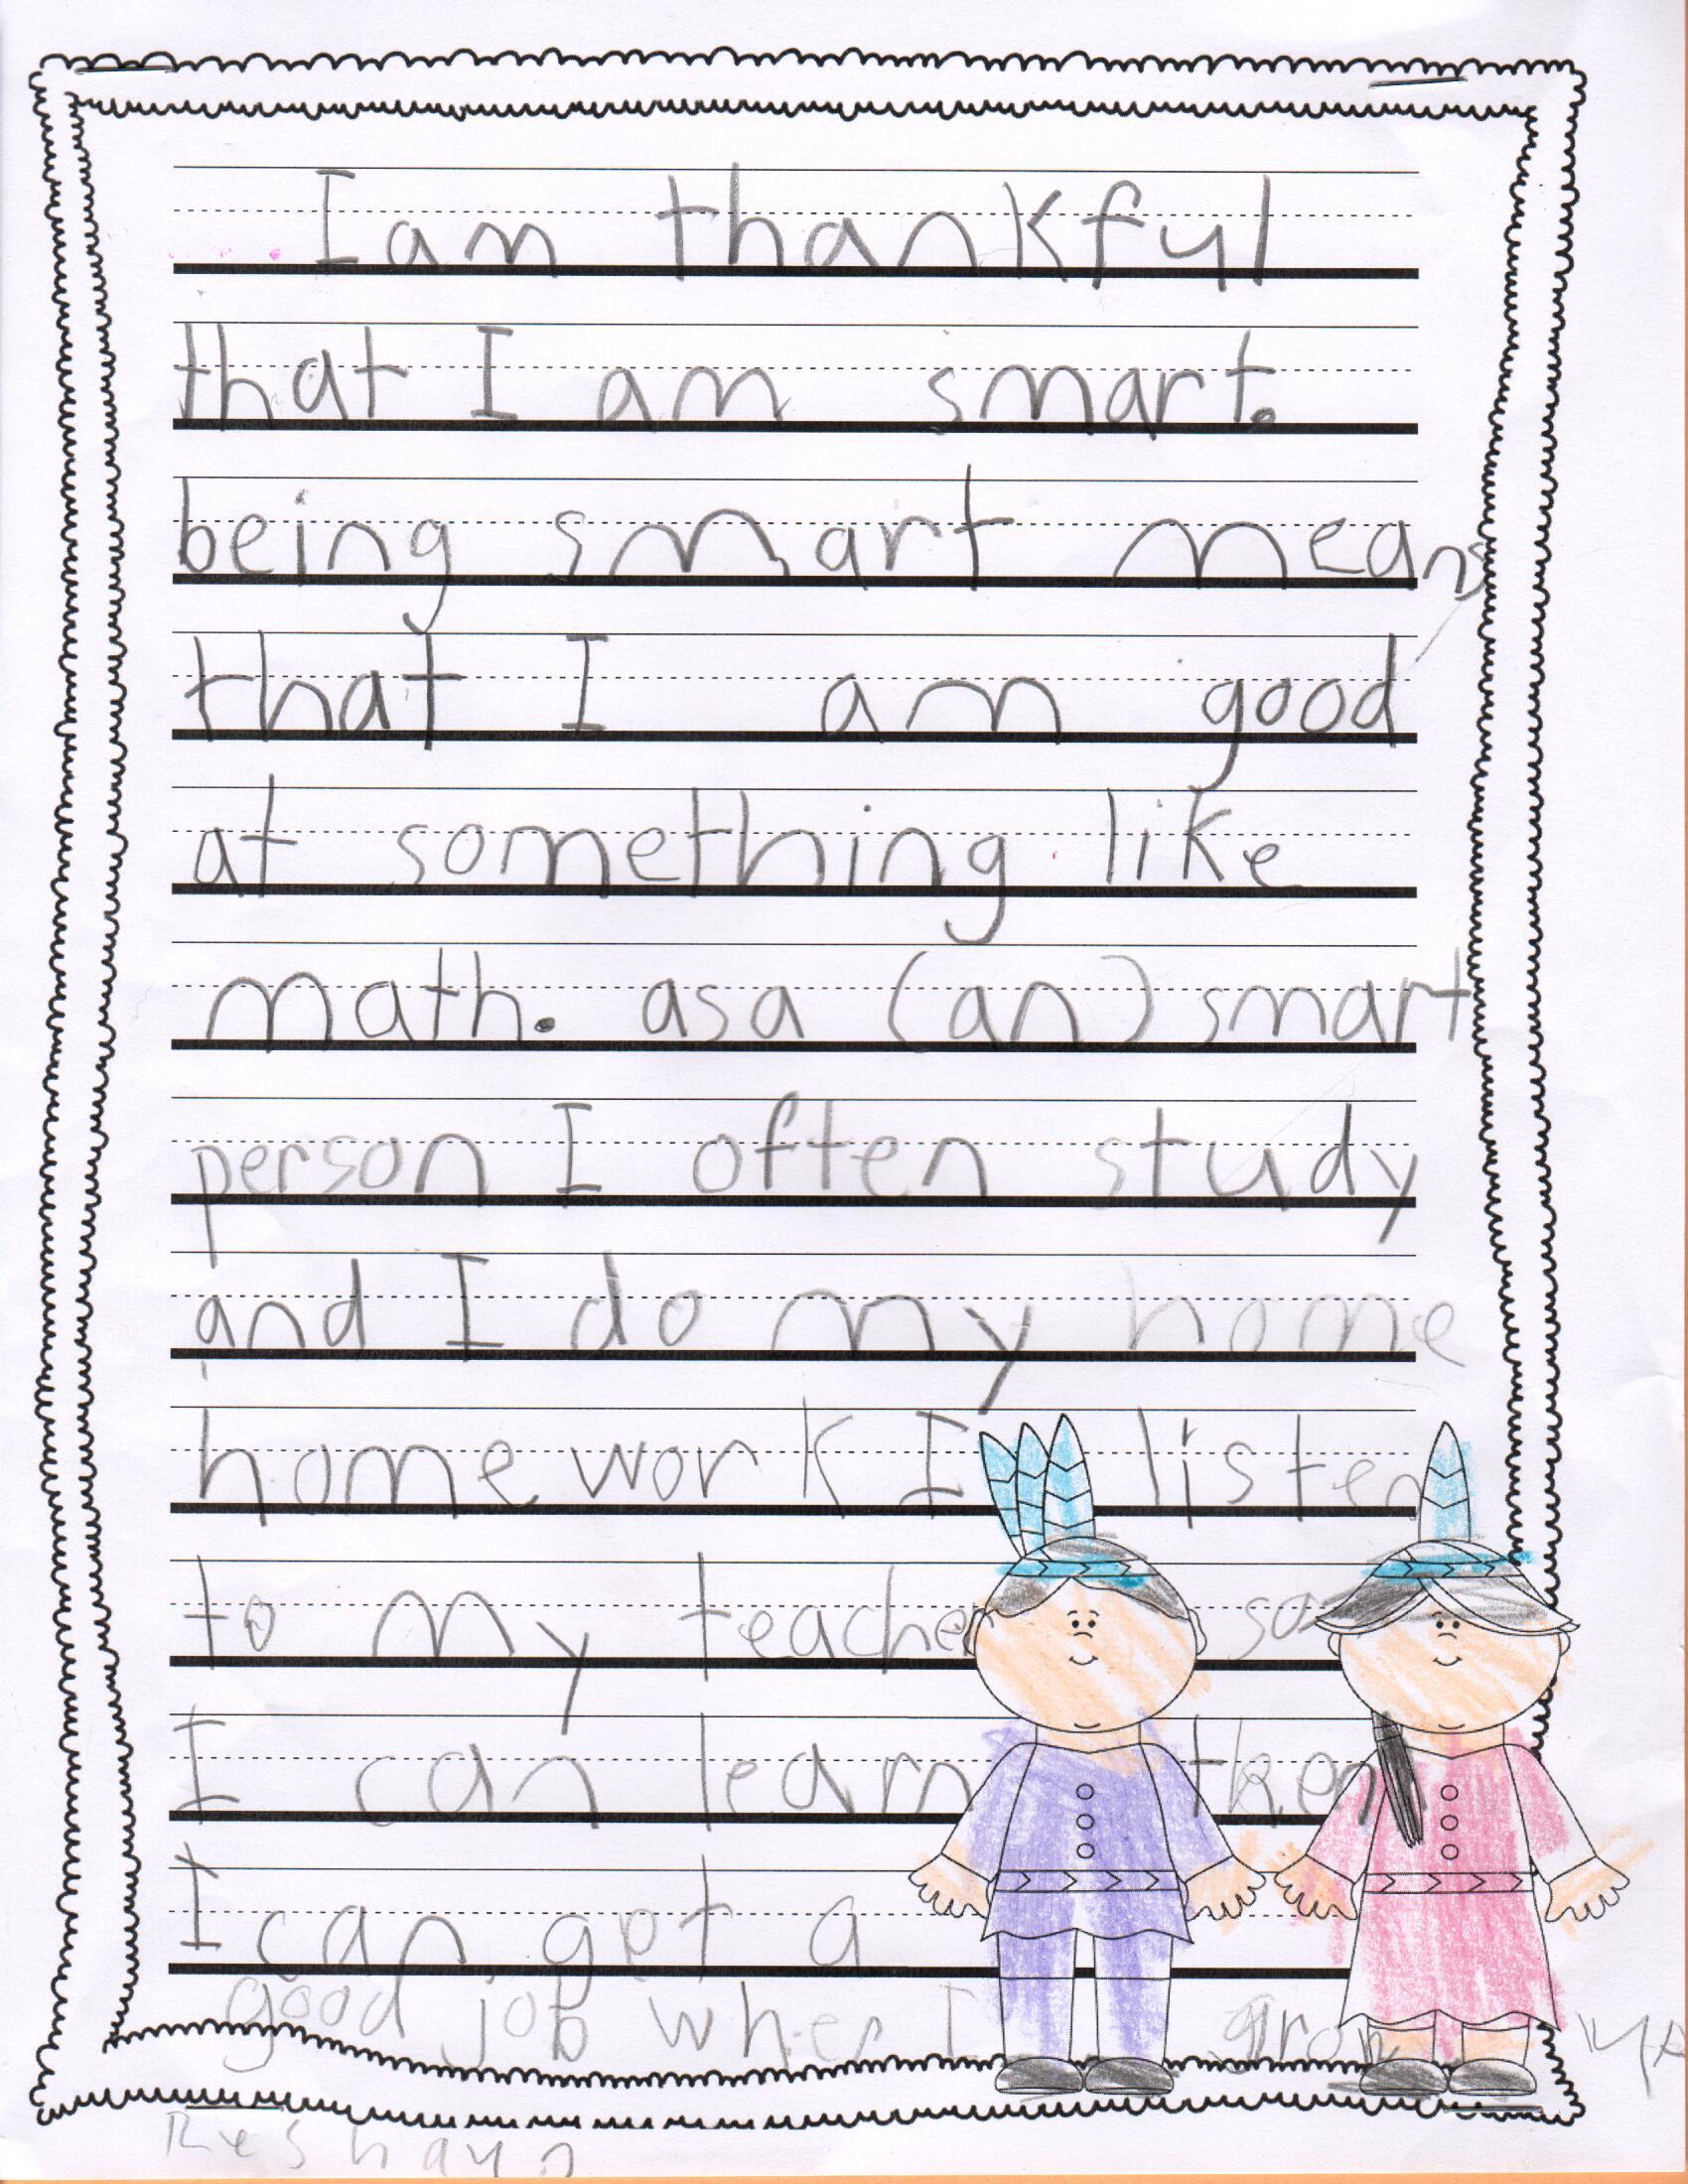 I am thankful
that I am smart.
being smart means
that I am good
at something like
math. as a (an) smart
person I often study
and I do my home
homework I listen
to my teacher so
I can learn then
I can get a
good job when I grow up